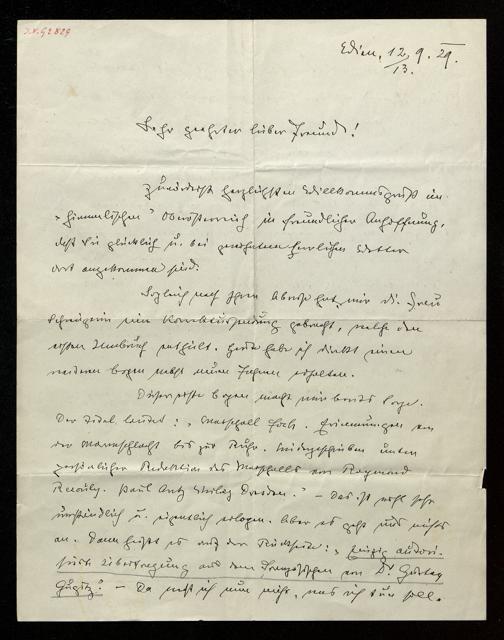 I.N. 92829
Wien, 12./13. 9. 29.
Sehr geehrter lieber Freund!
Zunächst herzlichsten Willkommensgruß im
"himmlischen" Oberösterreich in freundlicher Anhoffnung,
daß Sie glücklich u. bei herrlichem Wetter
dort angekommen sind.
Sogleich nach Ihrer Abreise hat mir die Frau
eine Korrektursendung gebracht, welche den
ersten Umbruch enthält. Heute habe ich direkt einen
weiteren Bogen nebst neuen Fahnen erhalten.
Dieser erste Bogen macht mir bereits Sorge.
Der Titel lautet: "Marschall Foch. Erinnerungen von
der Marneschlacht bis zur Ruhr. Niedergeschrieben unter
persönlicher Redaktion des Marschalls von Raymond
Recouly. Paul Aretz Verlag Dresden." – Das ist wohl sehr
umständlich u. eigentlich erlogen. Aber es geht uns nichts
an. Dann heißt es auf der Rückseite: "Einzig autori-
sierte Übertragung aus dem Französischen von Dr Gustav
Gugitz." – Da weiß ich nun nicht, was ich tun soll.